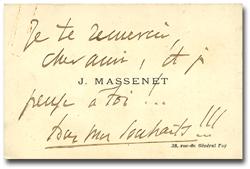 Je te remercie,
cher ami, et je
J. MASSENET
pense à toi !...
Tous mes souhaits !!!
38, rue du Général Foy